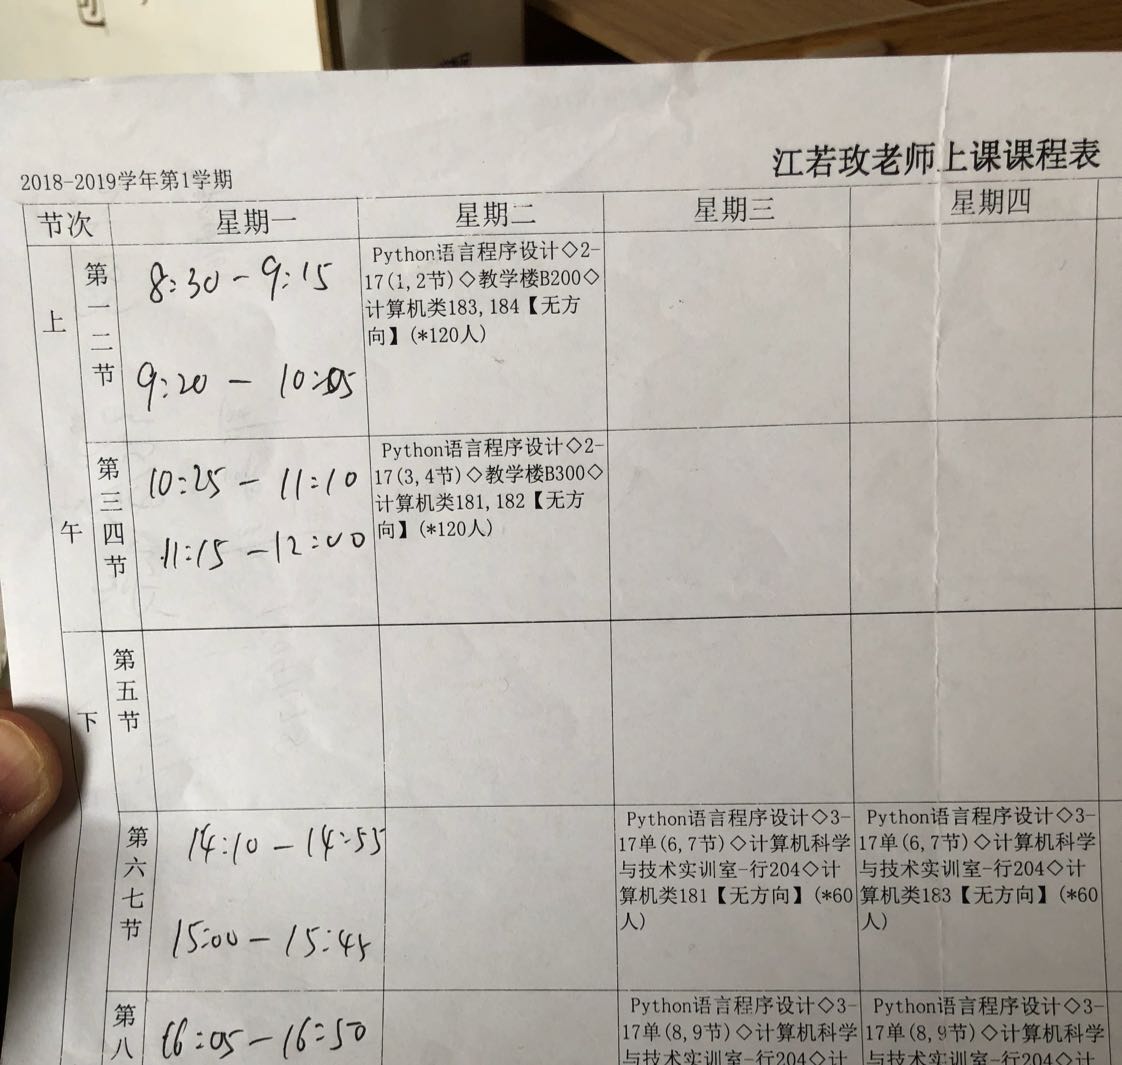 江若玫老师上课课程表
2018-2019学年第1学期
节次 星期一 星期二 星期三 星期四
上午
第一二节
8:30-9:15
9:20-10:05
Python语言程序设计◇2-
17(1,2节)◇教学楼B200◇
计算机类183,184【无方
向】(*120人)
第三四节
10:25-11:10
11:15-12:00
Python语言程序设计◇2-
17(3,4节)◇教学楼B300◇
计算机类181,182【无方
向】(*120人)
下
第五节
第六七节
14:10-14:55
15:00-15:45
Python语言程序设计◇3-
17单(6,7节)◇计算机科学
与技术实训室-行204◇计
算机类181【无方向】(*60
人)
Python语言程序设计◇3-
17单(6,7节)◇计算机科学
与技术实训室-行204◇计
算机类183【无方向】(*60
人)
第八
16:05-16:50
Python语言程序设计◇3-
17单(8,9节)◇计算机科学
与技术实训室-行204◇计
Python语言程序设计◇3-
17单(8,9节)◇计算机科学
与技术实训室-行204◇计